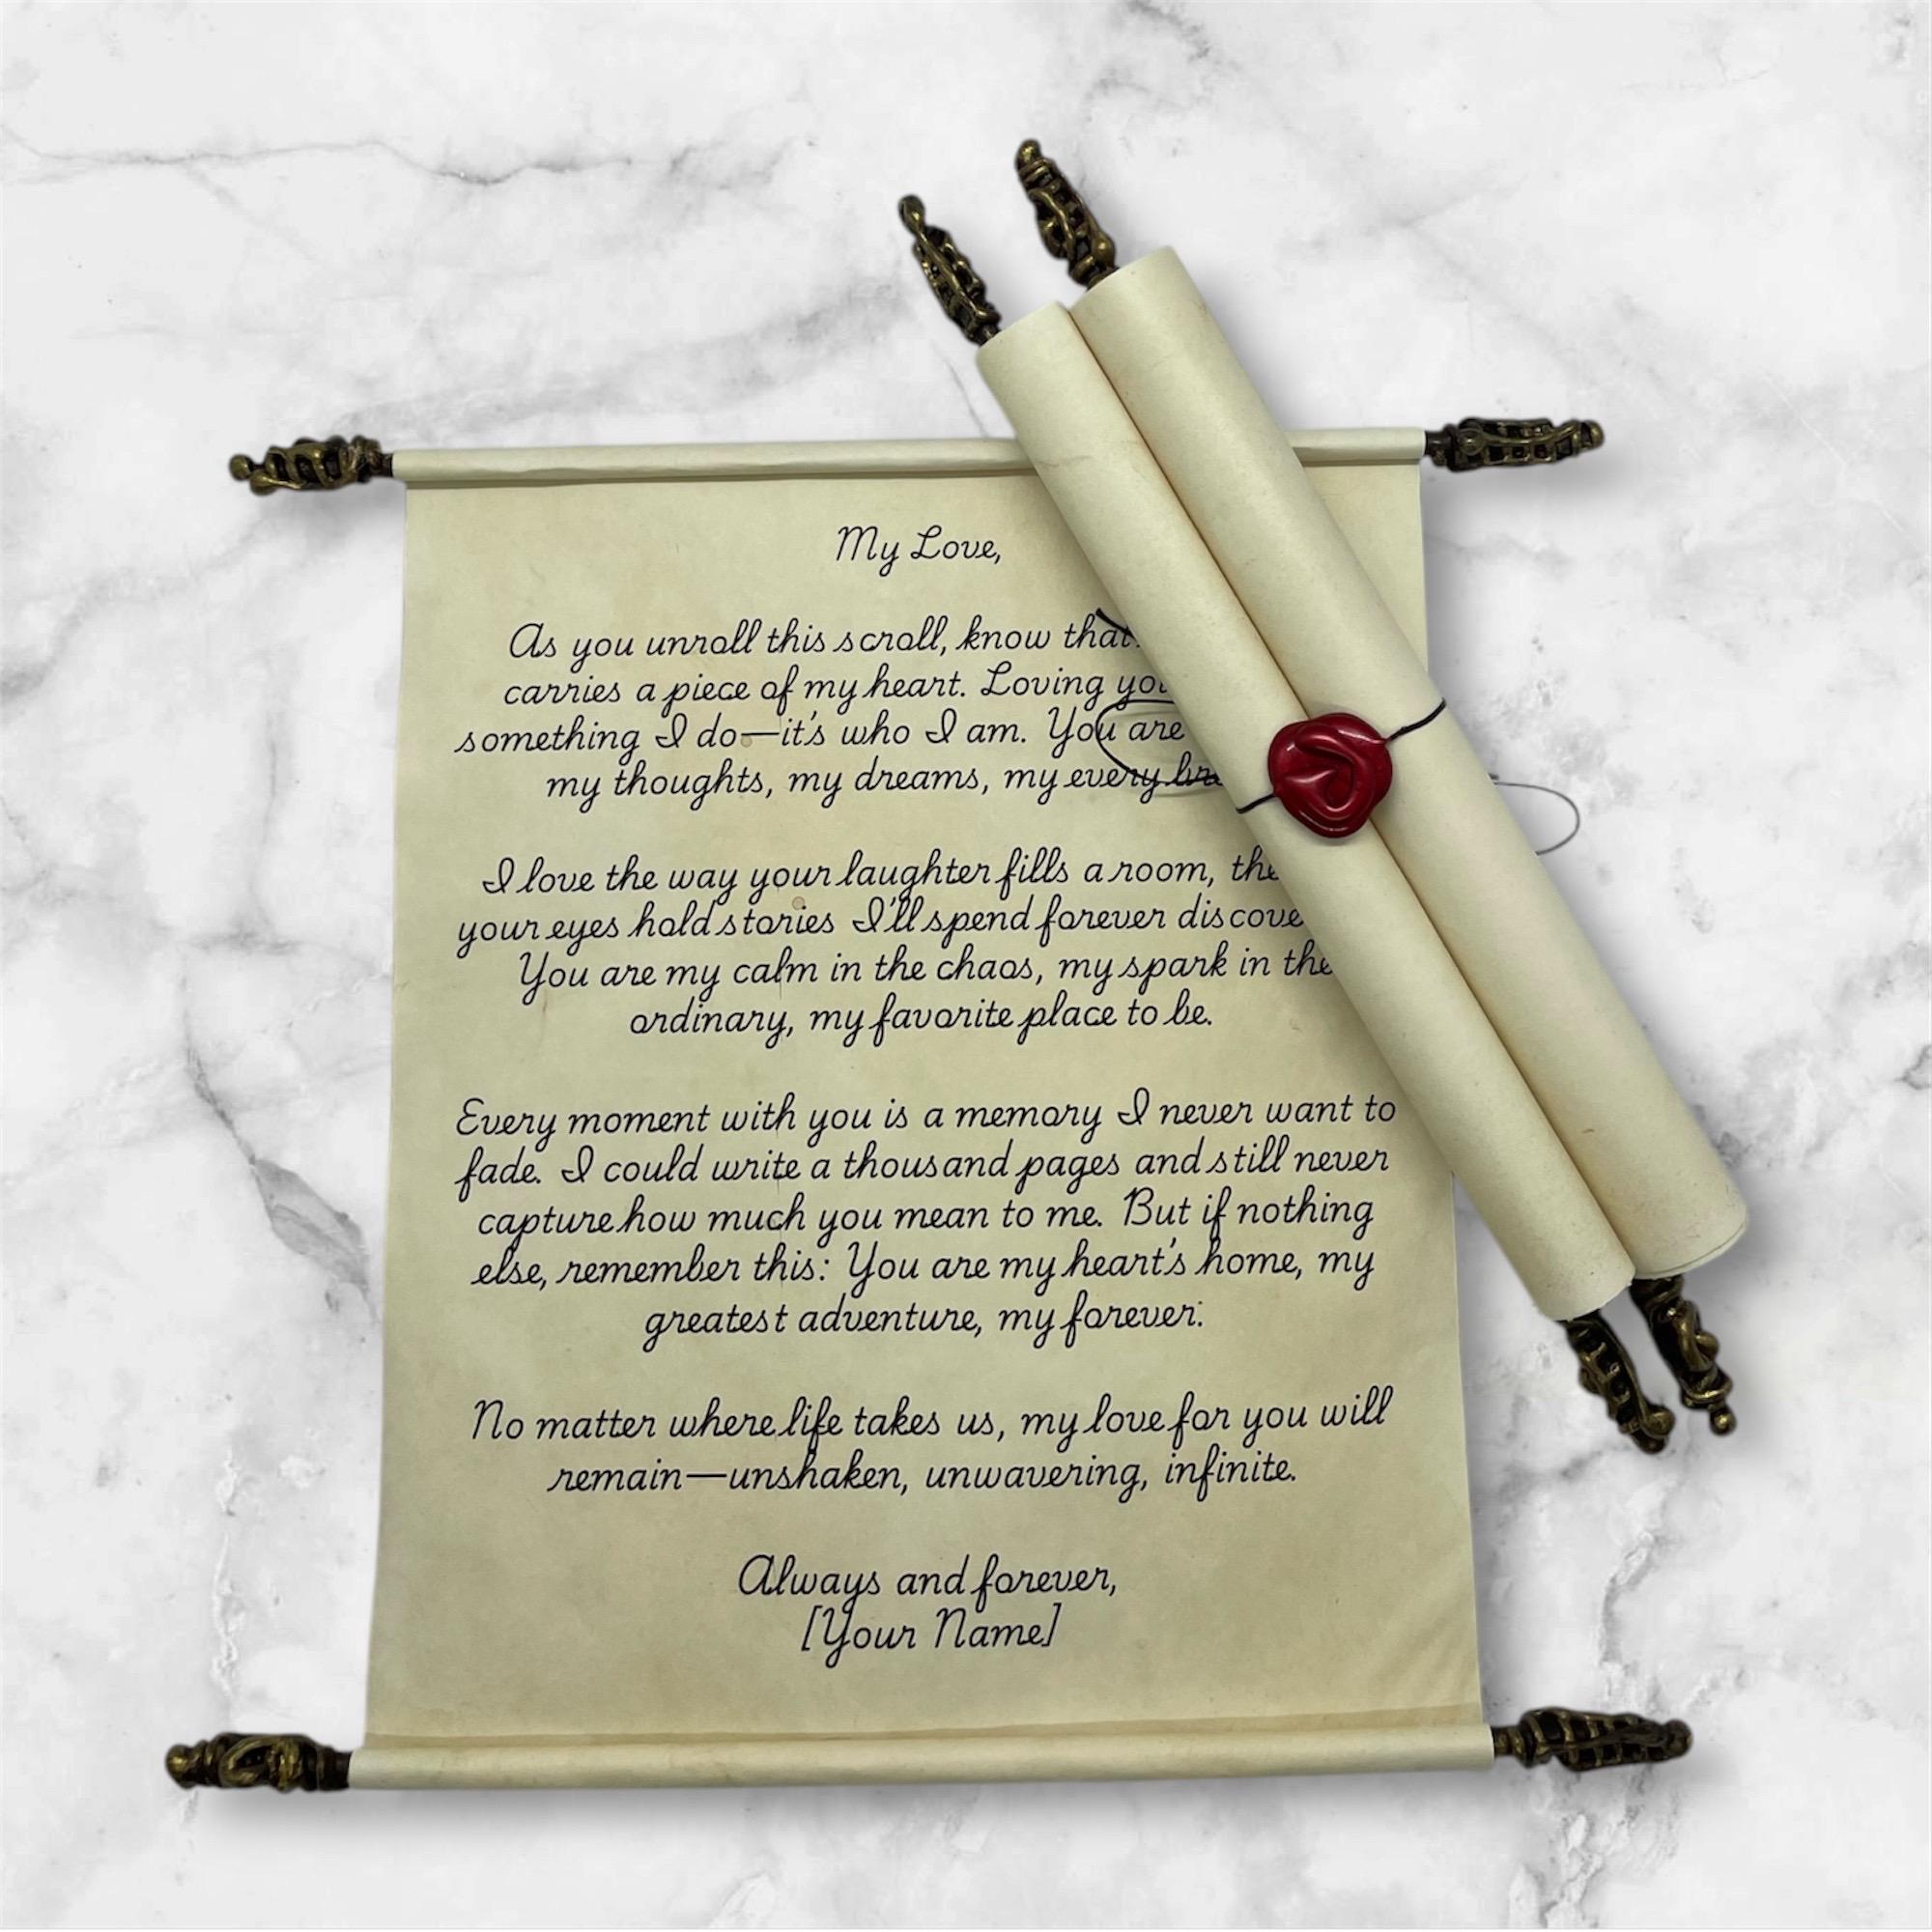 My Love,
As you unroll this scroll, know that
carries a piece of my heart. Loving
something I do—it's who I am. You are
my thoughts, my dreams, my every
I love the way your laughter fills a room,
your eyes hold stories I'll spend forever
You are my calm in the chaos, my spark in the
ordinary, my favorite place to be.
Every moment with you is a memory I never want to
fade. I could write a thousand pages and still never
capture how much you mean to me. But if nothing
else, remember this: You are my heart's home, my
greatest adventure, my forever.
No matter where life takes us, my love for you will
remain—unshaken, unwavering, infinite.
Always and forever,
[Your Name]